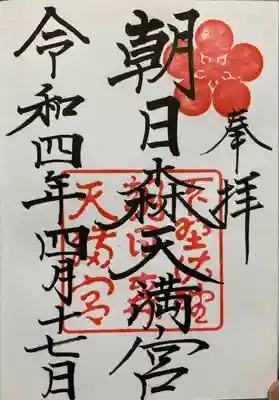 奉拝
朝日森天満宮
令和四年四月十七日